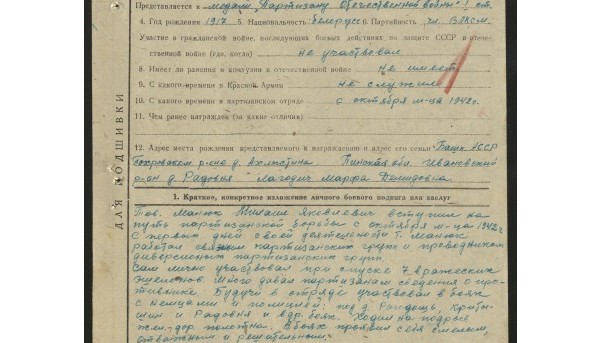 Представляется к медали „Партизану Отечественной войны" I ст.
4. Год рождения 1917 5. Национальность белорус 6. Партийность чл. ВЛКСМ
Участие в гражданской войне, последующих боевых действиях по защите СССР и отече-
ственной войне (где, когда) не участвовал
8. Имеет ли ранения и контузии в отечественной войне не имеет
9. С какого времени в Красной Армии не служил
10. С какого времени в партизанском отряде с октября м-ца 1942 г.
11. Чем ранее награжден (за какие отличия)
12. Адрес места рождения представляемого к награждению и адрес его семьи Башк. АССР
р-оне д. Пинская обл. Ивановский
р-он д. Радовня Лагодич Марфа Демидовна
1. Краткое, конкретное изложение личного боевого подвига или заслуг
Тов. Манюк Михаил Яковлевич вступил на
путь партизанской борьбы с октября м-ца 1942 г.
с первых дней своей деятельности т. Манюк
работал связным партизанских групп и проводником
диверсионных партизанских групп.
Сам лично участвовал при спуске 7 вражеских
эшелонов. Много давал партизанам сведения о про-
тивнике. Будучи в отряде участвовал в боях
с немцами и полицией: под д.
и Радовня и в др. боях. Ходил на подрыв
жел. дор. полотна. В боях проявил себя смелым,
отважным и решительным.
ДЛЯ ПОДШИВКИ